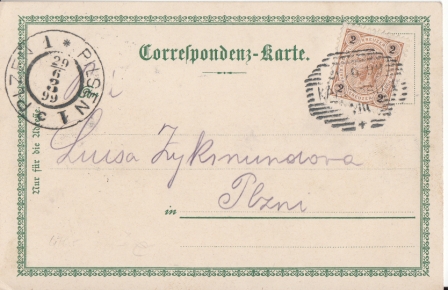 Correspondenz-Karte.
PLZEN 1 * PILSEN 1
29
6
99
2 2
2 2
Nur für die Adresse.
Luisa Zyksmundova
in Plzni